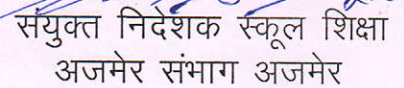 संयुक्त निदेशक स्कूल शिक्षा
अजमेर संभाग अजमेर